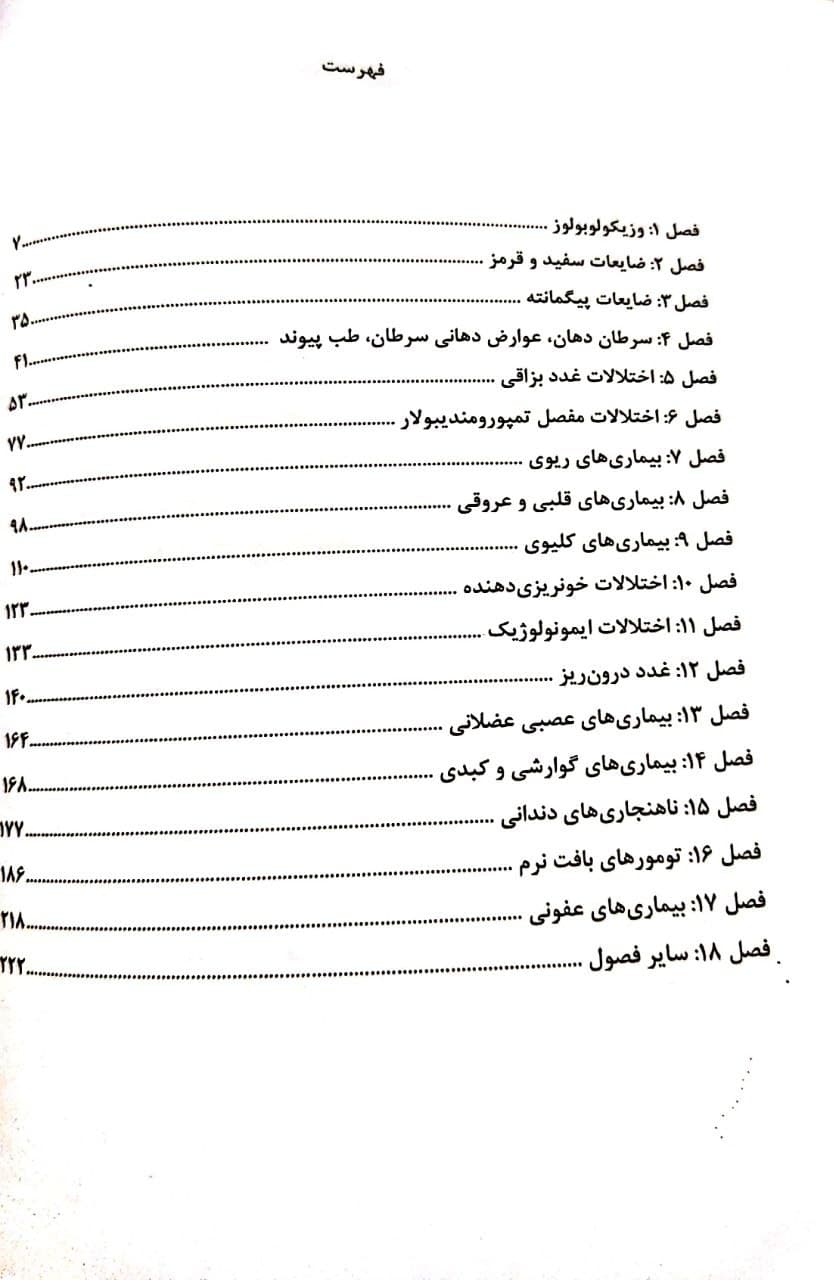 فهرست
فصل ۱: وزیکولوبولوز ........ ۷
فصل ۲: ضایعات سفید و قرمز ........ ۲۳
فصل ۳: ضایعات پیگمانته ........ ۳۵
فصل ۴: سرطان دهان، عوارض دهانی سرطان، طب پیوند ........ ۴۱
فصل ۵: اختلالات غدد بزاقی ........ ۵۳
فصل ۶: اختلالات مفصل تمپورومندیبولار ........ ۷۷
فصل ۷: بیماری‌های ریوی ........ ۹۲
فصل ۸: بیماری‌های قلبی و عروقی ........ ۹۸
فصل ۹: بیماری‌های کلیوی ........ ۱۱۰
فصل ۱۰: اختلالات خونریزی‌دهنده ........ ۱۲۳
فصل ۱۱: اختلالات ایمونولوژیک ........ ۱۳۳
فصل ۱۲: غدد درون‌ریز ........ ۱۴۰
فصل ۱۳: بیماری‌های عصبی عضلانی ........ ۱۶۴
فصل ۱۴: بیماری‌های گوارشی و کبدی ........ ۱۶۸
فصل ۱۵: ناهنجاری‌های دندانی ........ ۱۷۷
فصل ۱۶: تومورهای بافت نرم ........ ۱۸۶
فصل ۱۷: بیماری‌های عفونی ........ ۲۱۸
فصل ۱۸: سایر فصول ........ ۲۲۲